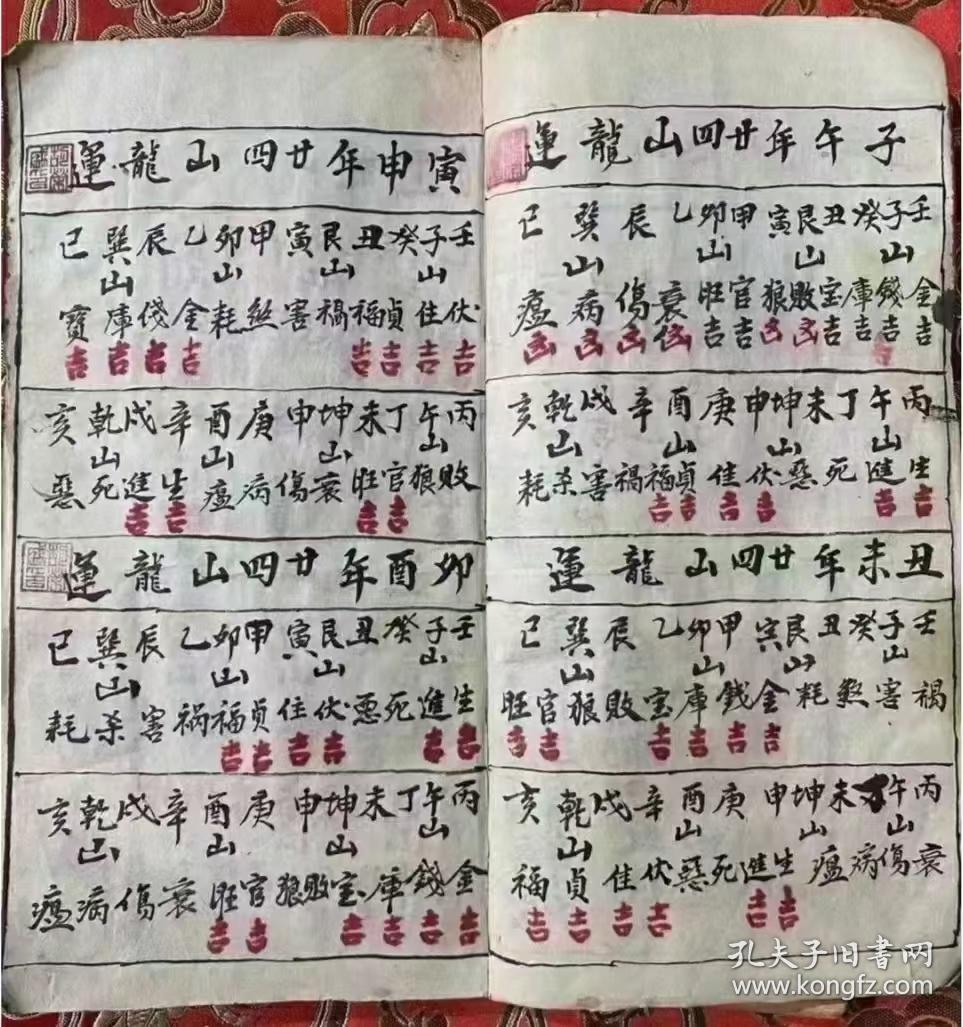 子午年廿四山龍運
壬子癸丑艮寅甲卯乙辰巽巳
山山山山
金錢庫宝敗狼官旺衰傷病瘟
吉吉吉吉凶凶吉吉凶凶凶凶
丙午丁未坤申庚酉辛戌乾亥
山山山山
生進死惡伏佳貞福禍害杀耗
吉吉吉吉吉吉
丑未年廿四山龍運
壬子癸丑艮寅甲卯乙辰巽巳
山山山山
禍害煞耗金錢庫宝敗狼官旺
吉吉吉吉吉吉
丙午丁未坤申庚酉辛戌乾亥
山山山山
衰傷病瘟生進死惡伏佳貞福
吉吉吉吉吉吉
寅申年廿四山龍運
壬子癸丑艮寅甲卯乙辰巽巳
山山山山
伏住貞福禍害煞耗金伐庫寶
吉吉吉吉吉吉吉吉
丙午丁未坤申庚酉辛戌乾亥
山山山
敗狼官旺衰傷病瘟生進死惡
吉吉吉吉
卯酉年廿四山龍運
壬子癸丑艮寅甲卯乙辰巽巳
山山山山
生進死悪伏住貞福祸害杀耗
吉吉吉吉吉吉
丙午丁未坤申庚酉辛戌乾亥
山山山山
金錢庫宝敗狼官旺衰傷病瘟
吉吉吉吉吉吉
孔夫子旧書网
www.kongfz.com